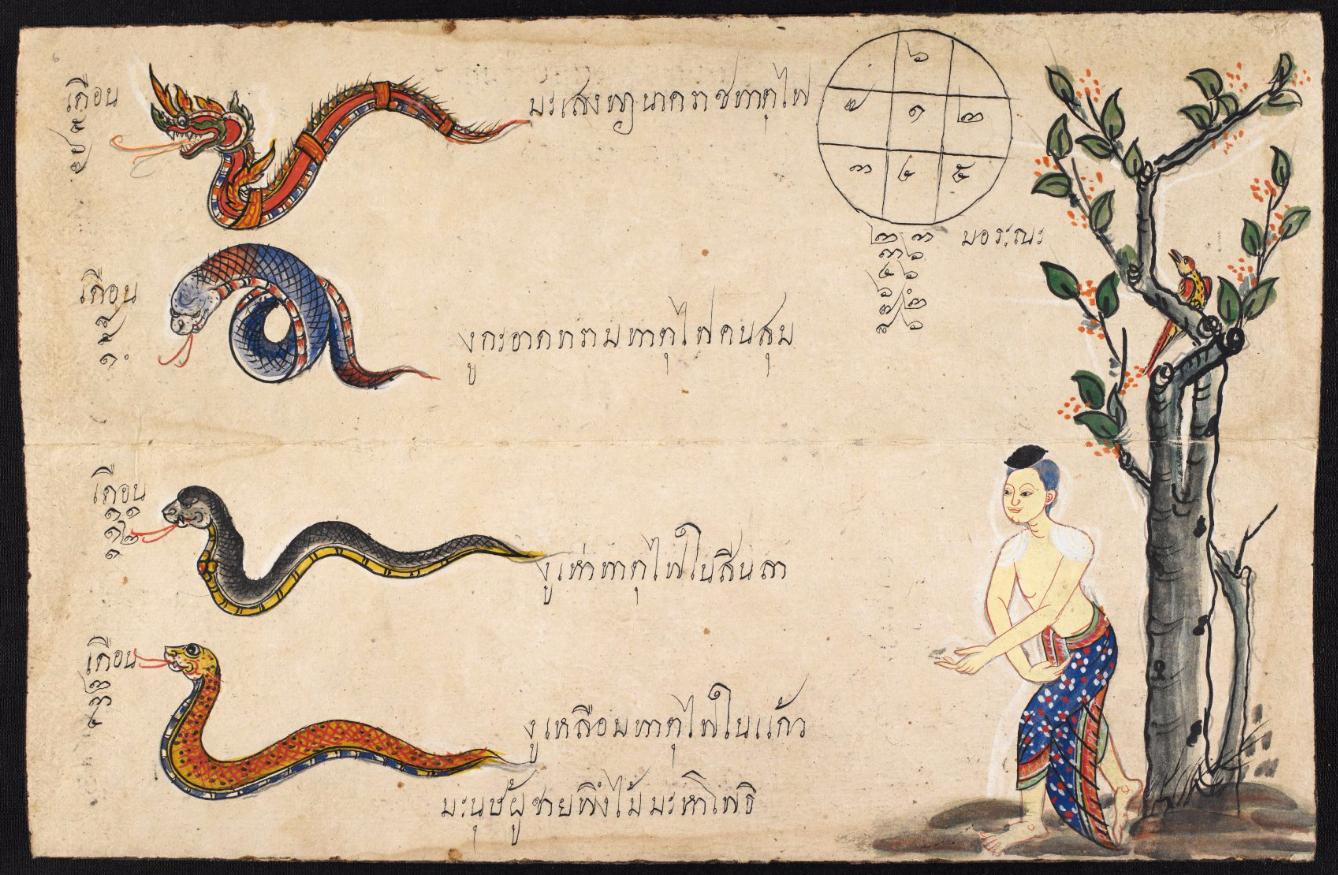 เดือน
มะเสงพญานาคราชทาตุไฟ
๖
๗ ๑ ๒
๓ ๔ ๕
มอระณะ
เดือน
๘
๙
๑๐
งูกะอาดทรามทาตุไฟคบสุม
เดือน
๑๑
๑๒
๑
งูเห่าทาตุไฟไนสินลา
เดือน
๒
๓
๔
งูเหลือมทาตุไฟไนแก้ว
มะนุษผู้ชายพิงไม้มะหาโพธิ